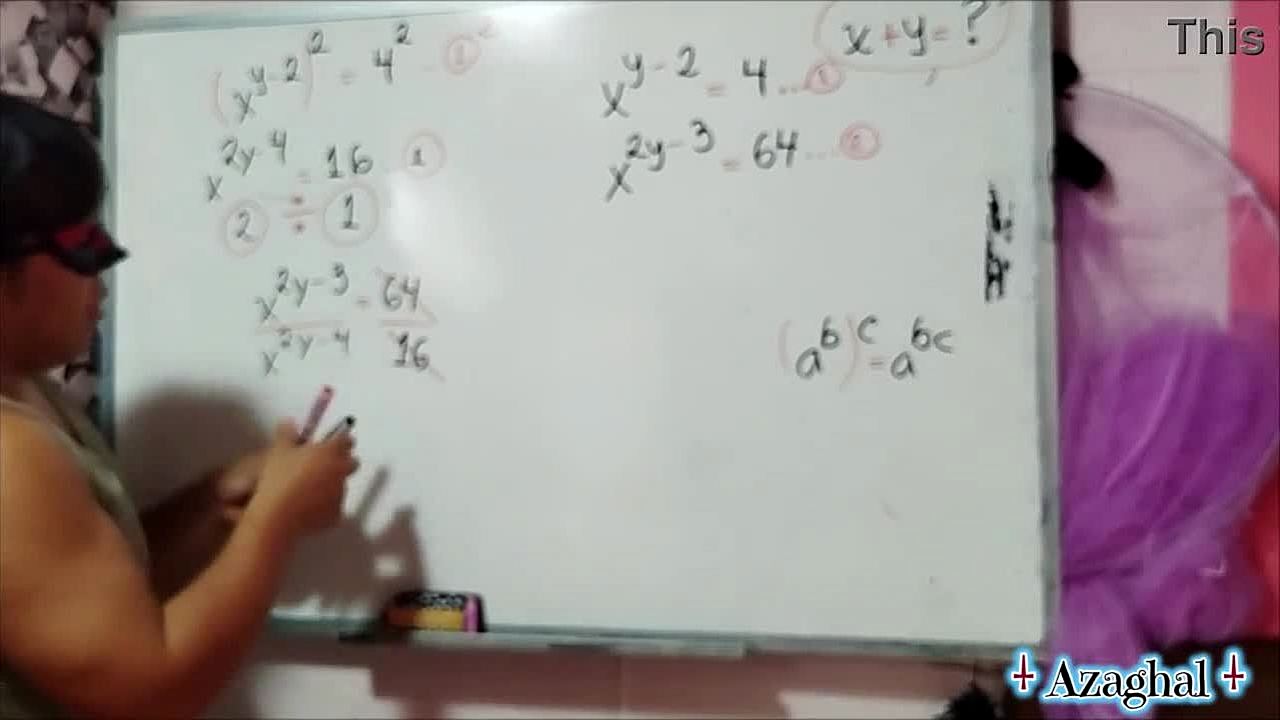 (x^{y-2})^2 = 4^2 ... ①^2
x^{2y-4} = 16 ... ①
② ÷ ①
x^{2y-3} / x^{2y-4} = 64 / 16
x + y = ?
x^{y-2} = 4 ... ①
x^{2y-3} = 64 ... ②
(a^b)^c = a^{bc}
This
Azaghal